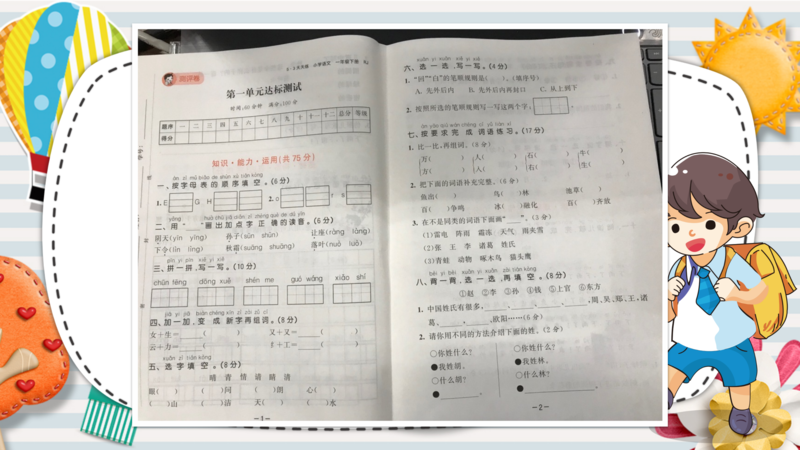 第一单元达标测试
时间:60分钟 满分:100分
题序 一 二 三 四 五 六 七 八 九 十 十一 十二 总分 等级
得分
知识·能力·运用(共75分)
一、按字母表的顺序填空。(6分)
1. E G H 2. o r s
二、用“ ”画出加点字正确的读音。(6分)
阴天(yīn yīng) 孙子(sūn shūn) 让座(ràng làng)
下令(lìn lìng) 秋霜(suāng shuāng) 落叶(nuò luò)
三、拼一拼,写一写。(10分)
chūn fēng dōng xuě shén me guó wáng xiǎo shí
四、加一加,变成新字再组词。(8分)
女+生= ( ) 又+又= ( )
云+力= ( ) 纟+工= ( )
五、选字填空。(8分)
睛 青 情 请 晴 清
眼( ) ( )问 ( )朗 心( )
( )山 ( )洁 天( ) ( )水
—1—
六、选一选,写一写。(4分)
1. “问”“白”的笔顺规则是( )。(填序号)
A. 先外后内 B. 先外后内再封口 C. 从上到下
2. 按照所选的笔顺规则写一写这两个字。
七、按要求完成词语练习。(17分)
1. 比一比,再组词。(8分)
万( ) 人( ) 石( ) 牛( )
方( ) 入( ) 右( ) 生( )
2. 把下面的词语补充完整。(6分)
鱼出( ) 鸟( )林 池草( )
百( )争鸣 冰( )融化 百( )齐放
3. 在不是同类的词语下面画“ ”。(3分)
(1)雷电 阵雨 霜冻 天气 雨夹雪
(2)张 王 李 诸葛 姓氏
(3)青蛙 动物 啄木鸟 猫头鹰
八、背一背,选一选,再填空。(8分)
①赵 ②李 ③孙 ④钱 ⑤上官 ⑥东方
1. 中国姓氏有很多, 、 、 、 ,周、吴、郑、王,诸
葛、 , 、欧阳……(6分)
2. 请你用不同的方法介绍下面的姓。(2分)
○你姓什么?
●我姓胡。
○什么胡?
● 。
○你姓什么?
●我姓林。
○什么林?
● 。
—2—